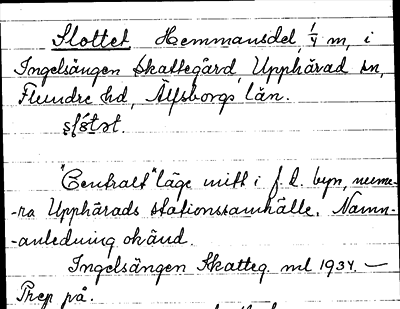 Slottet Hemmansdel, 1/4 m, i
Ingelsängen Skattegård, Upphärad sn,
Flundre hd, Älfsborgs län.
"Centralt" läge mitt i f. d. byn, nume-
-ra Upphärads stationssamhälle. Namn-
-anledning okänd.
Ingelsängen Skatteg. ml 1934. —
Prep på.